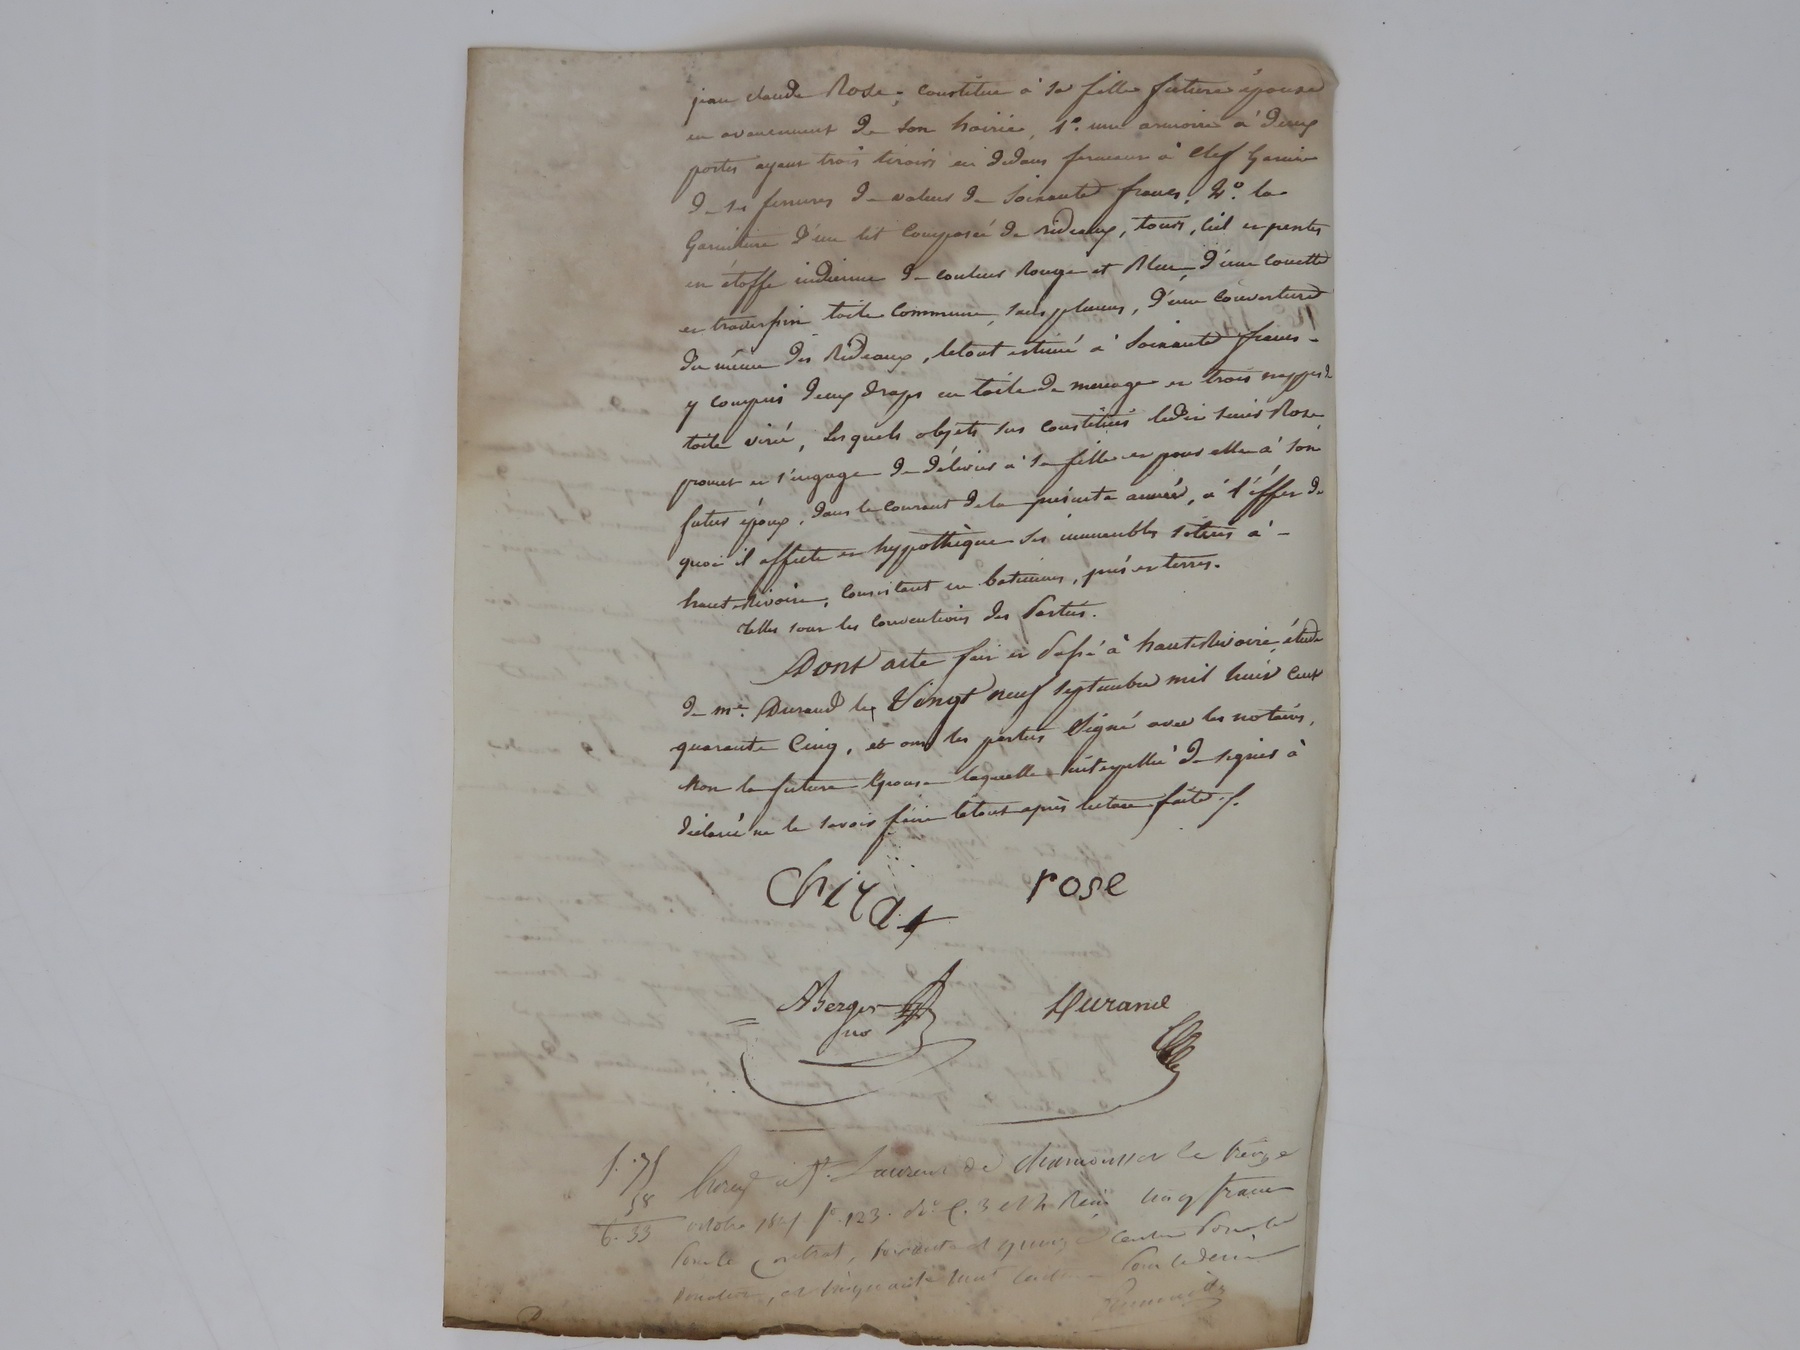 jean claude Rose, constitue à sa fille future épouse
en avancement de son hoirie, 1º. une armoire à deux
portes ayant trois tiroirs en dedans fermant à clef Garnie
de ses ferrures de valeur de Soixante francs, 2º. la
Garniture d'un lit composé de rideaux, tours, ciel et pentes
en étoffe indienne de couleur Rouge et Bleu, d'une couette
et traversin toile commune, sans plumes, d'une couverture
du même des Rideaux, letout estimé à Soixante francs -
y compris deux draps en toile de menage et trois nappes de
toile , Lesquels objets sus constitués ledit sieur Rose
promet et s'engage de délivrer à sa fille et pour elle à son
futur époux, dans le courant dela présente année, à l'effet de
quoi il affecte et hypothèque ses immeubles situés à -
haute Rivoire, consistant en batiments, prés et terres.
telles sont les conventions des Parties.
Dont acte fait et Passé à haute Rivoire, étude
de me. Durand le Vingt neuf septembre mil huit cent
quarante Cinq, et ont les parties Signé avec les notaires,
Non la future Epouse laquelle interpellée de signer à
déclaré ne le savoir faire letout après lecture faite ./.
Chirat rose
ABerger Durand
no
5. 75
58
6. 33
Enreg à St. Laurent de chamousset le treize
octobre 1845 fº. 123. Vº. C. 3 et Reçu cinq francs
Pour le contrat, soixante et quinze centimes Pour la
Donation, et cinquante huit centimes Pour le Decime